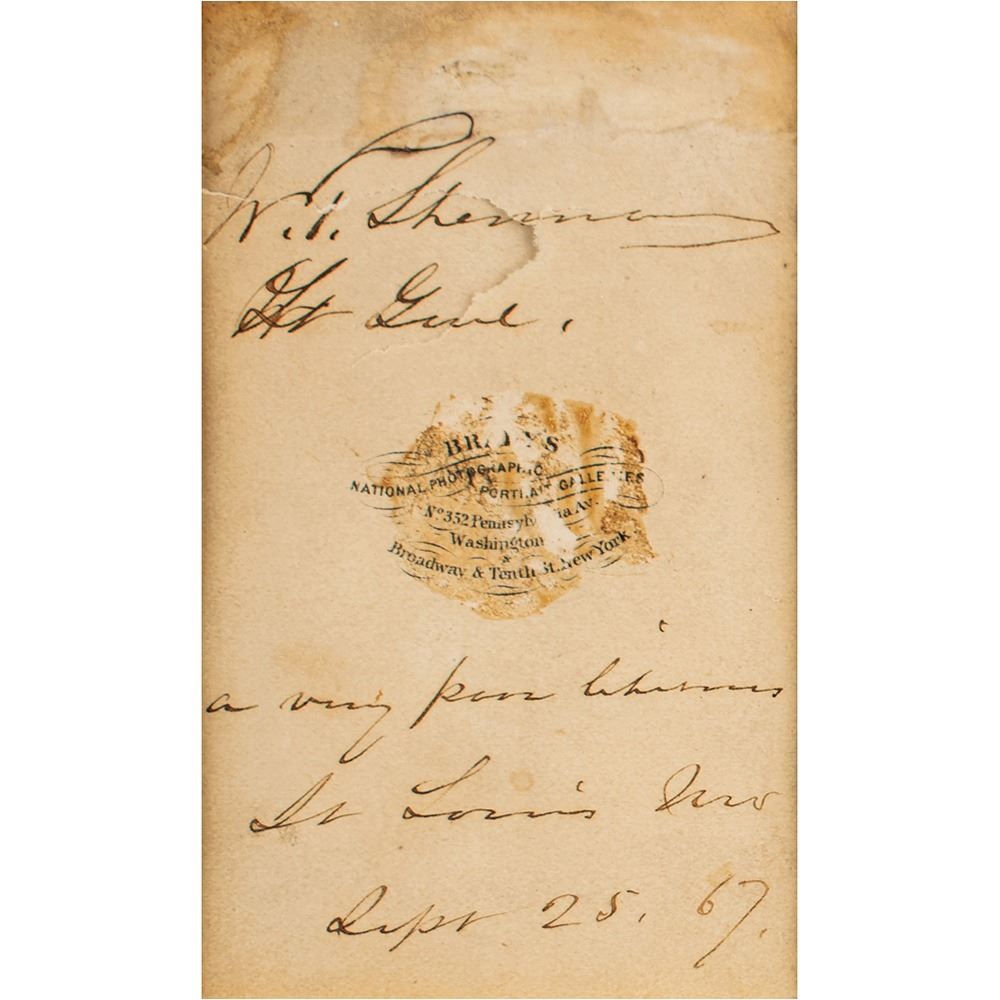 W. T. Sherman
Lt Genl.
BRADY'S
NATIONAL PHOTOGRAPHIC
PORTRAIT GALLERIES
No. 352 Pennsylvania Av.
Washington
&
Broadway & Tenth St. New York
a very poor likeness
St Louis Mo
Sept 25. 67.